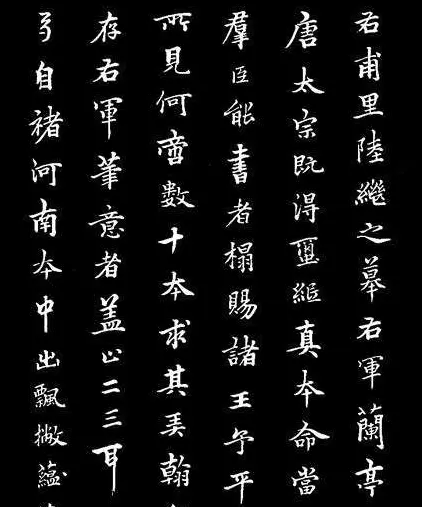 右甫里陸繼之摹右軍蘭亭
唐太宗既得真本命當
羣臣能書者搨賜諸王予平
所見何啻數十本求其弄翰
存右軍筆意者蓋止二三耳
自褚河南本中出飄撇蘊